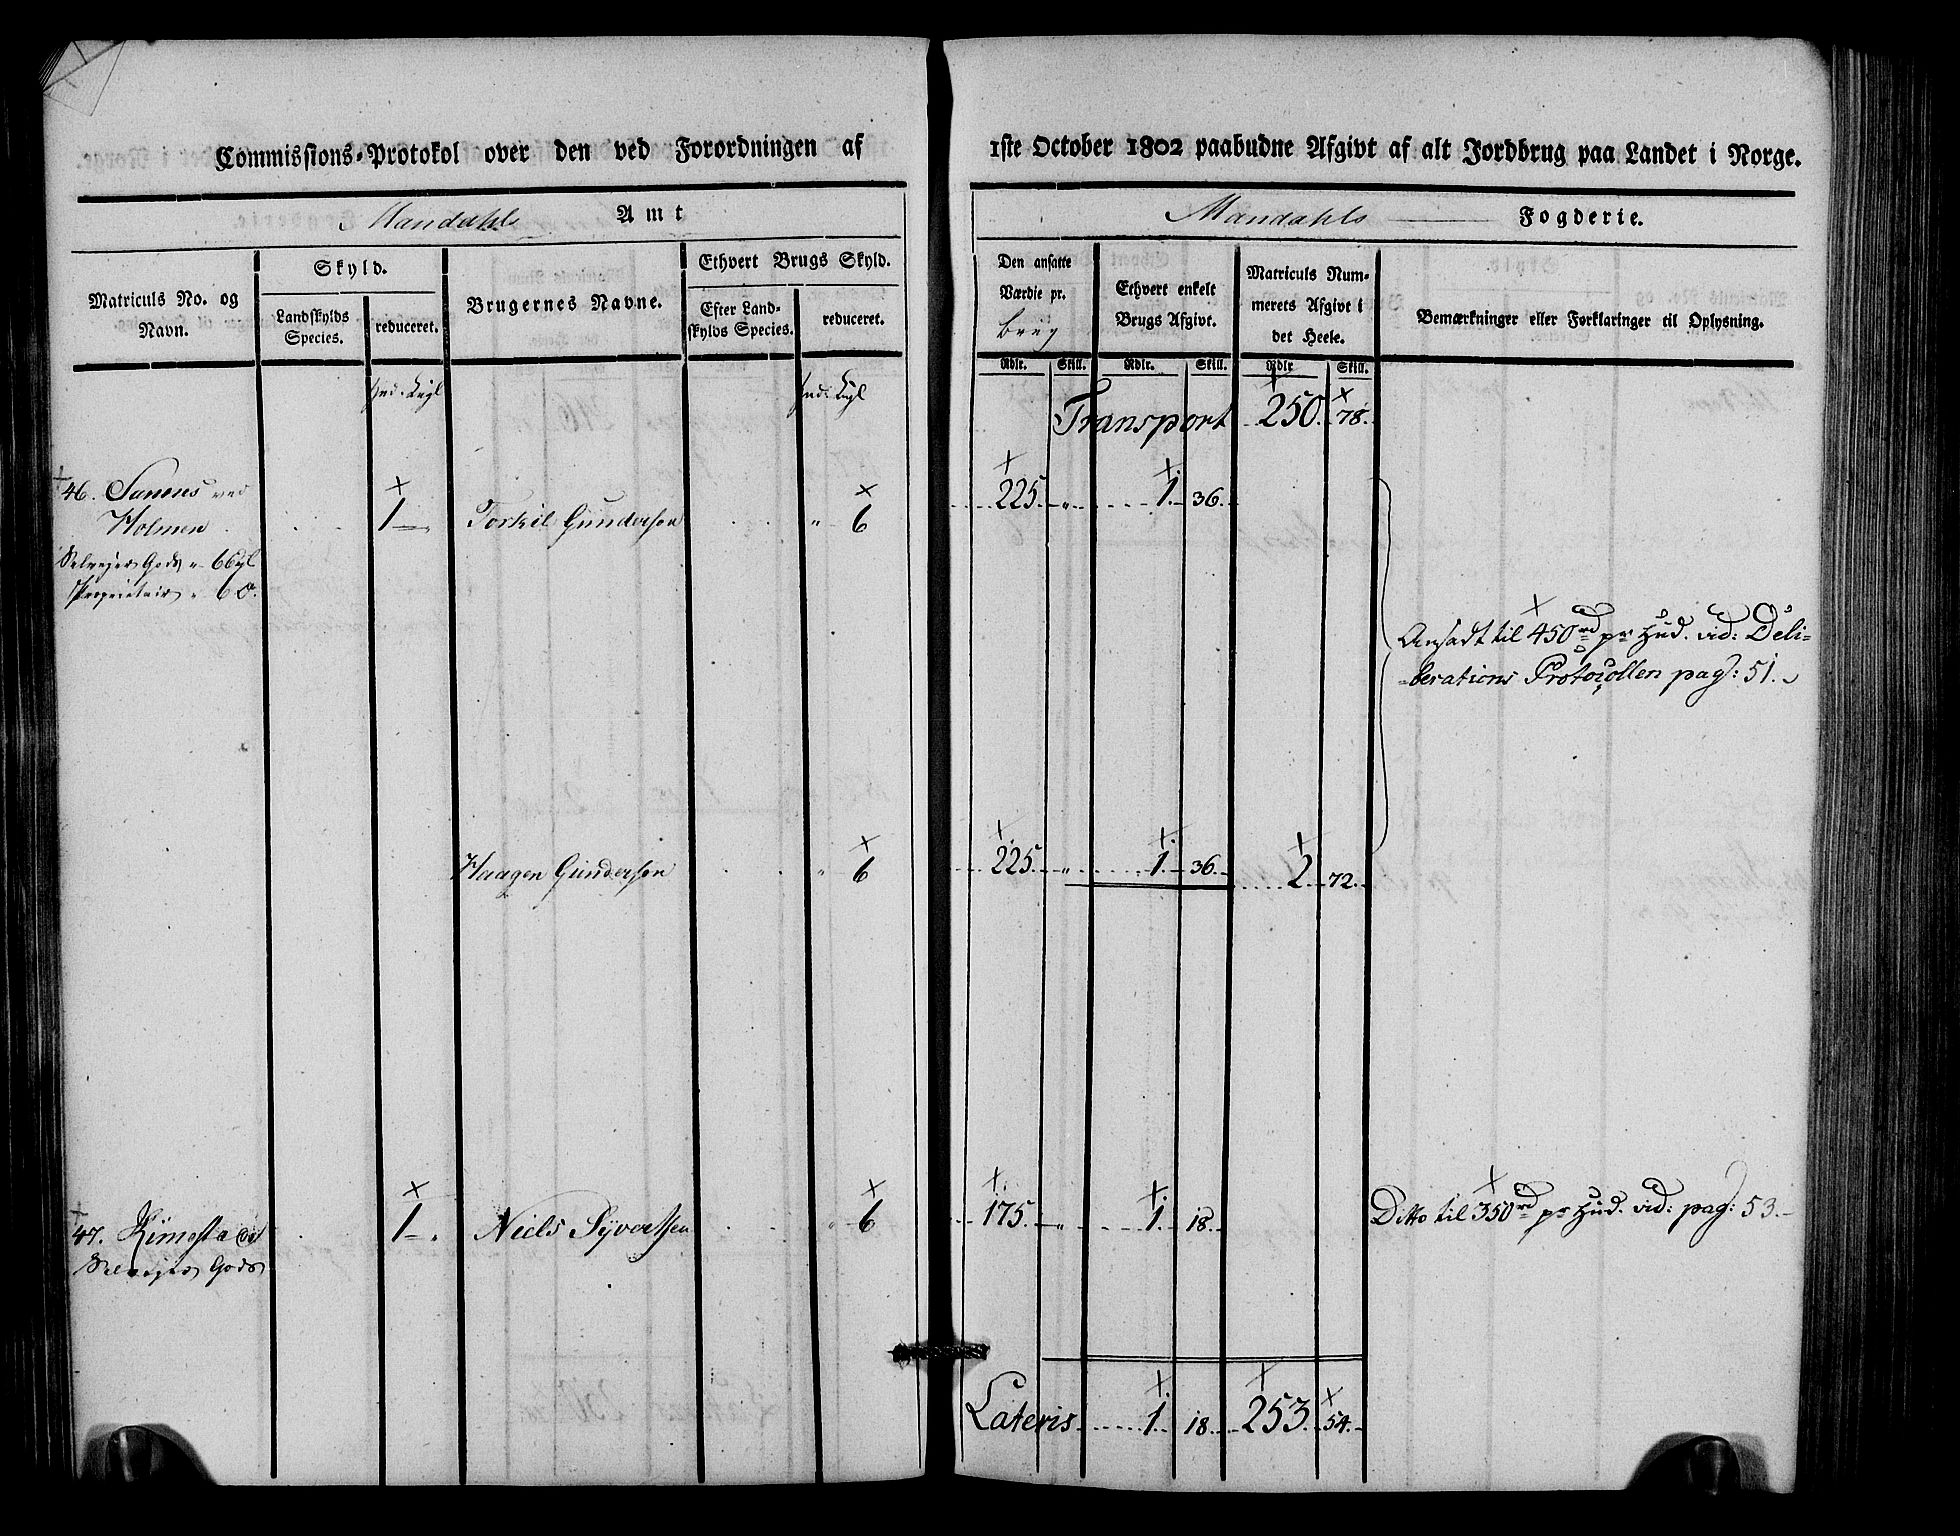 Commissions-Protokol over den ved Forordningen af 1ste October 1802 paabudne Afgivt af alt Jordbrug paa Landet i Norge.
Mandahls Amt
Mandahls Fogderie.
Matriculs No. og Navn.
Skyld.
Landskylds Species.
reduceret.
Brugernes Navne.
Ethvert Brugs Skyld.
Efter Landskylds Species.
reduceret.
Den ansatte Værdie pr. brug
Ethvert enkelt Brugs Afgivt.
Matriculs Nummerets Afgivt i det Heele.
Bemærkninger eller Forklaringer til Oplysning.
Rdlr. Skill. Rdlr. Skill. Rdlr Skill.
Transport 250. 78.
46. Sanens ved
Holmen 1 Torkil Gundersen " 6 225. " 1. 36.
Selvejer Gods
Proprietair
Ansadt til 450 rd pr Hud. vid: Deli-
berations Protocollen pag: 51.
Haagen Gundersen " 6 225. " 1. 36. 2 72.
47. Kimestad 1 Niels Syvertsen " 6 175. " 1. 18. Ditto til 350 rd pr Hud. vid: pag: 53.
Selvejer Gods
Lateris 1. 18. 253. 54.